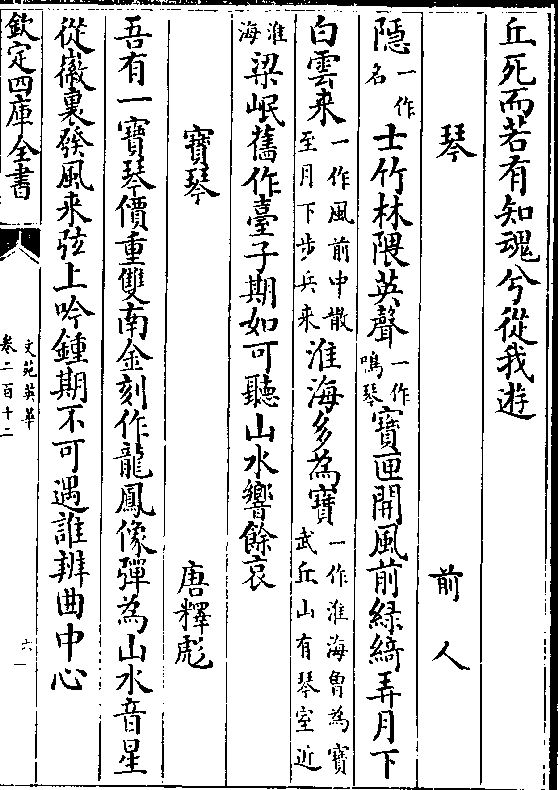 丘死而若有知魂兮從我遊
琴 前人
隱一作名士竹林隈英聲一作鳴琴寶匣開風前綠綺弄月下
白雲来一作風前中散至月下步兵来淮海多為寶一作淮海魯為寶武丘山有琴室近
淮海梁岷舊作臺子期如可聽山水響餘哀
寶琴 唐釋彪
吾有一寶琴價重雙南金刻作龍鳳像彈為山水音星
從徽裏發風来弦上吟鍾期不可遇誰辨曲中心
欽定四庫全書
文苑英華
卷二百十二
六